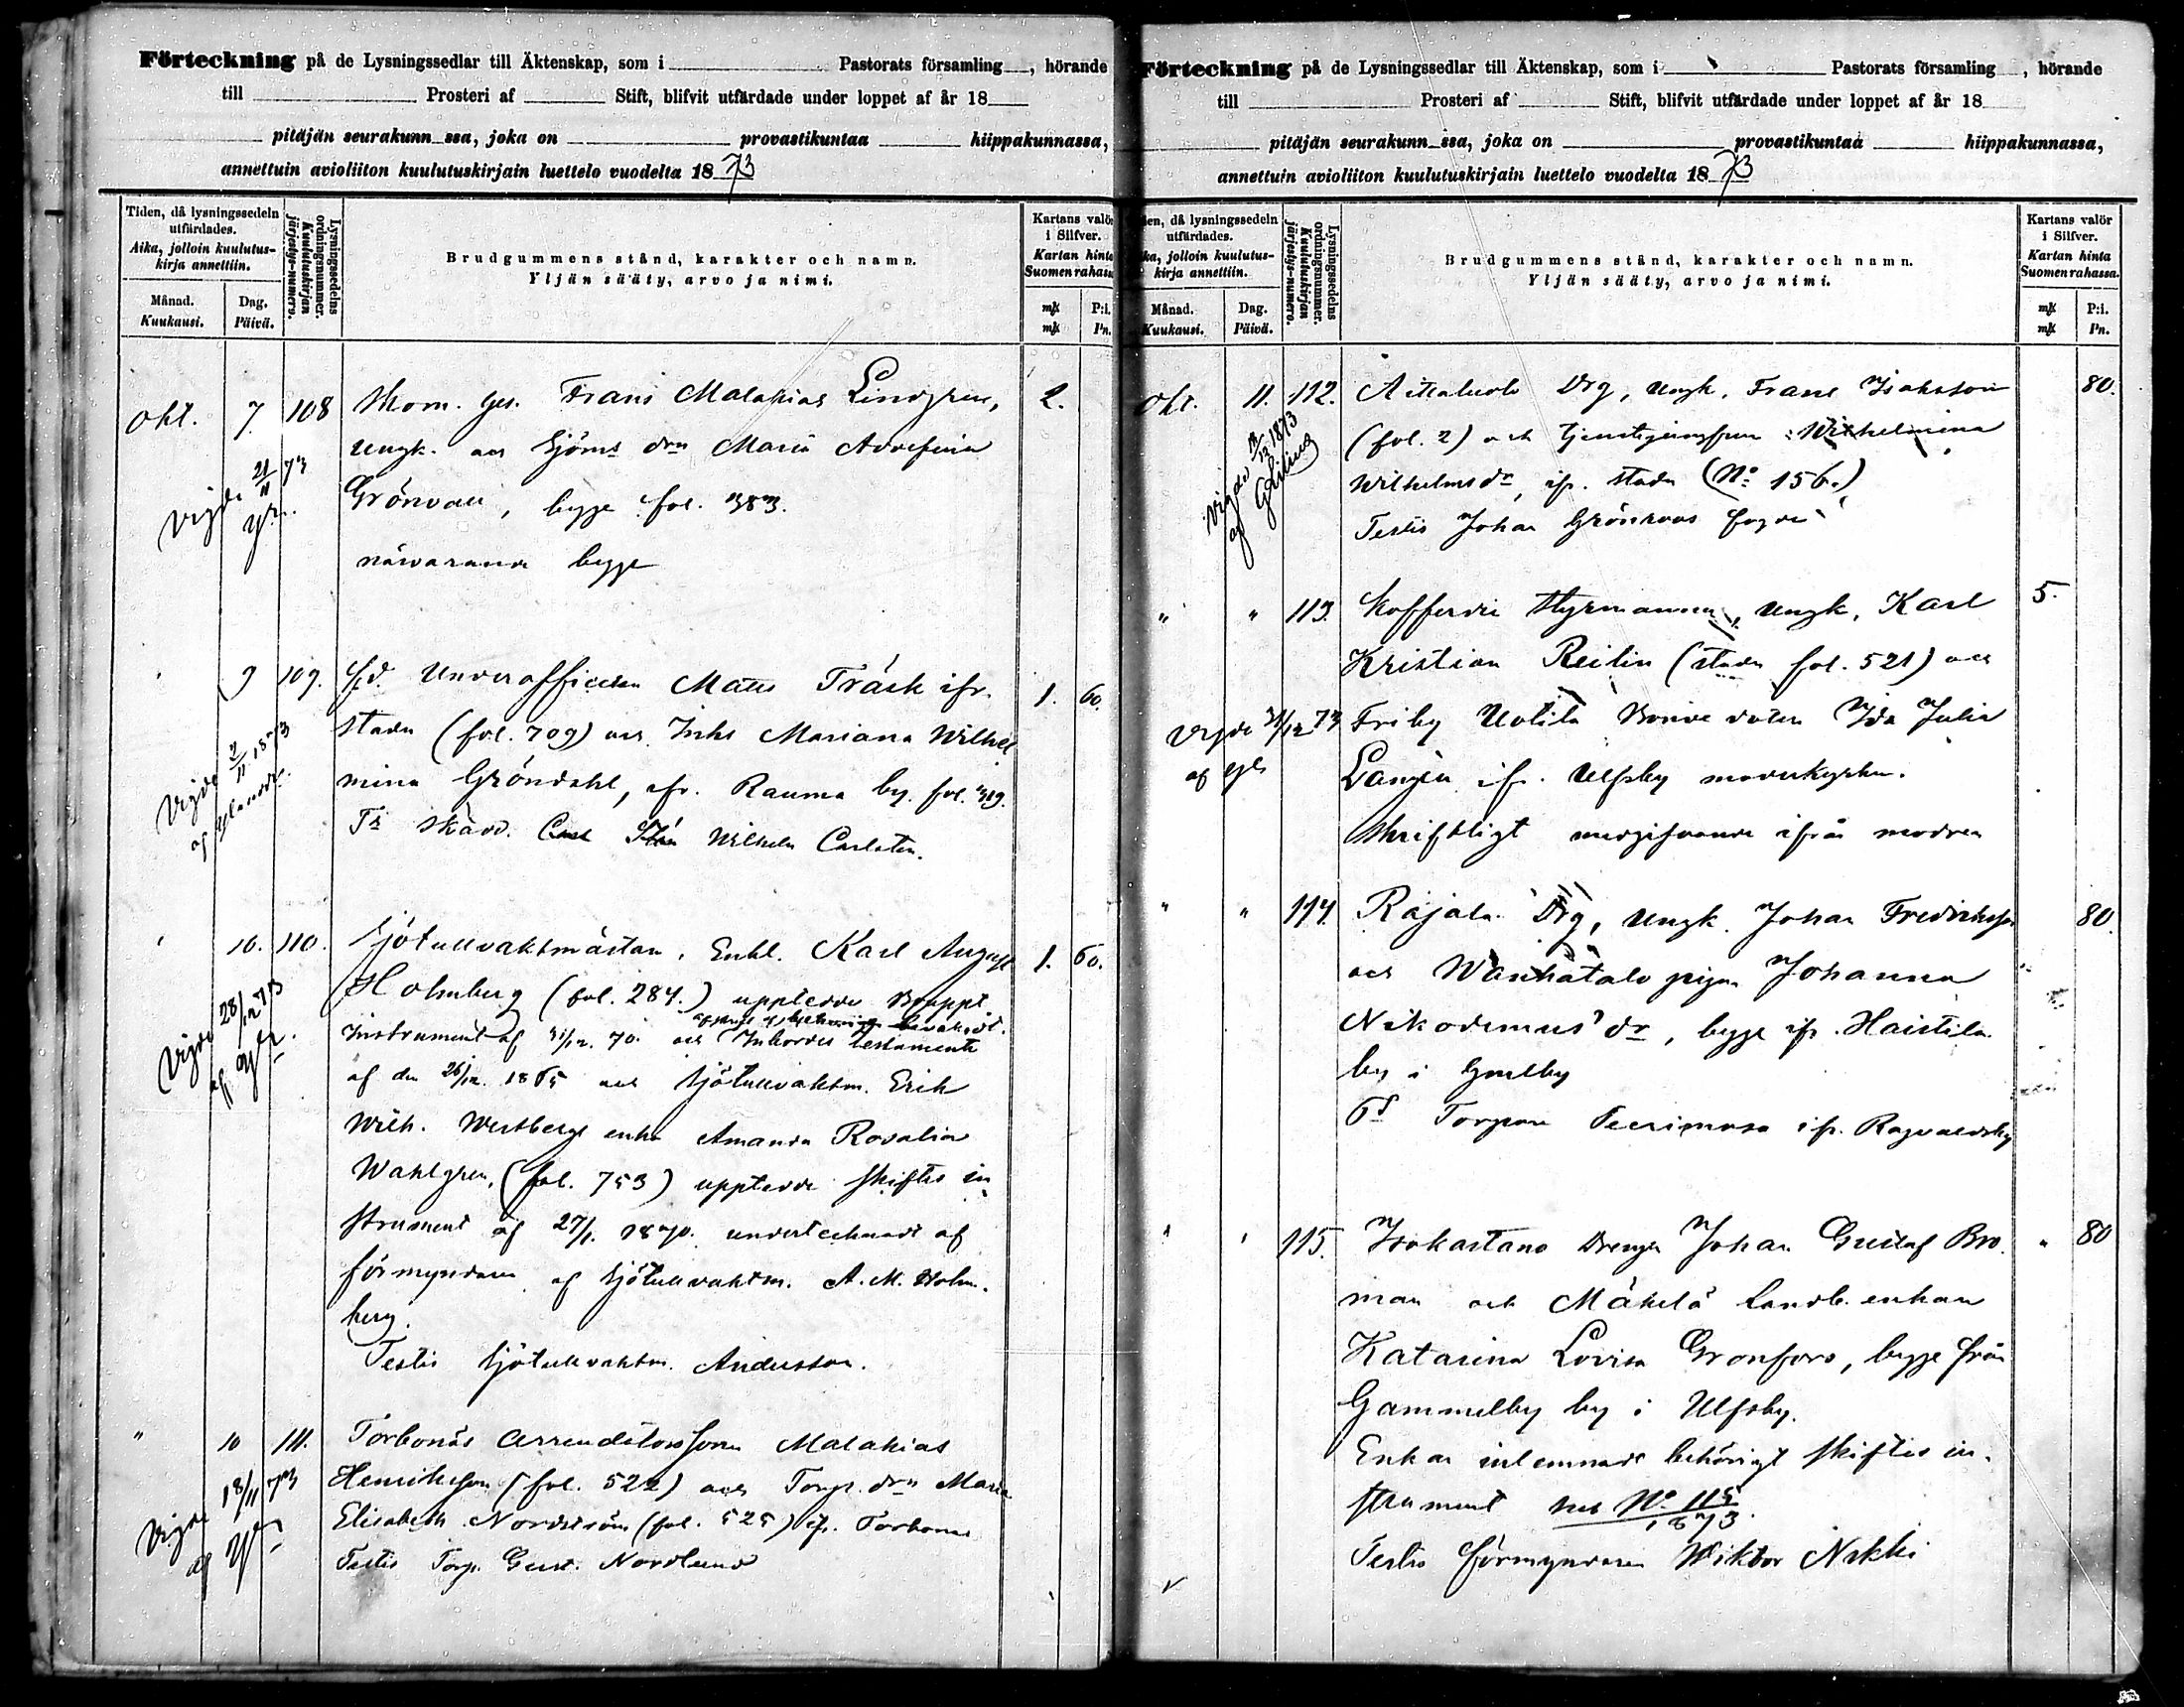 Förteckning på de Lysningssedlar till Äktenskap, som i Pastorats församling, hörande
till Prosteri af Stift, blifvit utfärdade under loppet af år 18
pitäjän seurakunn ssa, joka on provastikuntaa hiippakunnassa,
annettuin avioliiton kuulutuskirjain luettelo vuodelta 1873
Tiden, då lysningssedeln utfärdades.
Aika, jolloin kuulutus-kirja annettiin.
Månad. Kuukausi.
Dag. Päivä.
Lysningssedelns ordningsnummer.
Kuulutuskirjan järjestys-numero.
Brudgummens stånd, karakter och namn.
Yljän sääty, arvo ja nimi.
Kartans valör i Silfver.
Kartan hinta Suomen rahassa
mk P:i.
mk Pn.
Okt. 7. 108 Skom. ges. Frans Malakias Lindgren, 2.
Ungk. och Sjöms drn Maria Adolfina
Vigde 21/11 73
Grönvall, begge fol. 383.
närvarande begge
9 109. f.d. Underofficeren Matts Träsk ifr. 1. 60.
staden (fol. 709) och Inhs Mariana Wilhel
Vigde 2/11 1873
mina Gröndahl, ifr. Rauma by. fol. 319.
Wilhelm Carlsten.
10. 110. Sjötullvaktmästaren, Enkl. Karl August 1. 60.
Holmberg (fol. 284.) uppterde Bouppt.
Vigde 28/12 73
instrument af 31/12. 70. och Inbördes testamente
af den 26/12. 1865 och Sjötullvaktm. Erik
Wilh. Westbergs enka Amanda Rosalia
Wahlgren, (fol. 753) uppterde skiftes in
strument af 27/1. 1870. undertecknadt af
förmyndaren af Sjötullvaktm. A. M. Holm-
berg.
Testis Sjötullvaktm. Andersson.
" 10 111. Torbonäs Arrendatorssonen Malakias
Henriksson (fol. 522) och Torp. drn Maria
Vigde 18/11 73
Elisabeth Nordström (fol. 525) ifr. Torbonäs
Testis Torp. Gust. Nordlund
Förteckning på de Lysningssedlar till Äktenskap, som i Pastorats församling, hörande
till Prosteri af Stift, blifvit utfärdade under loppet af år 18
pitäjän seurakunn ssa, joka on provastikuntaa hiippakunnassa,
annettuin avioliiton kuulutuskirjain luettelo vuodelta 1873
en, då lysningssedeln utfärdades.
ka, jolloin kuulutus-kirja annettiin.
Månad. Kuukausi.
Dag. Päivä.
Lysningssedelns ordningsnummer.
Kuulutuskirjan järjestys-numero.
Brudgummens stånd, karakter och namn.
Yljän sääty, arvo ja nimi.
Kartans valör i Silfver.
Kartan hinta Suomen rahassa.
mk P:i.
mk Pn.
Okt. 11. 112. Drg, Ungk. Frans Isaksson 80.
(fol. 2) och tjenstejungfrun Wilhelmina
Wilhelmsdr, ifr. staden (No 156.)
Testis Johan Grönroos
" " 113. Kofferdie Styrmannen, Ungk. Karl 5.
Kristian Reilin (staden fol. 521) och
Vigde 31/12 73 Friby Uotila Bonde dotern Ida Julia
Langén ifr. Ulfsby moderkyrka.
Skriftligt medgifvande ifrån modren
" " 114. Rajala Drg, Ungk. Johan Fredriksson 80.
och Wanhatalo pigan Johanna
Nikodemus dr, begge ifr. Haistila
by i
Torparen ifr. Ragvaldsby
115. Isokartano Drengen Johan Gustaf Bro- " 80
man och Mäkelä Landb. enkan
Katarina Lovisa Gronfors, begge från
Gammelby by i Ulfsby.
Enkan inlemnade behörigt skiftes in-
strument sub No 115/1873.
Testis förmyndaren Wiktor Nikki